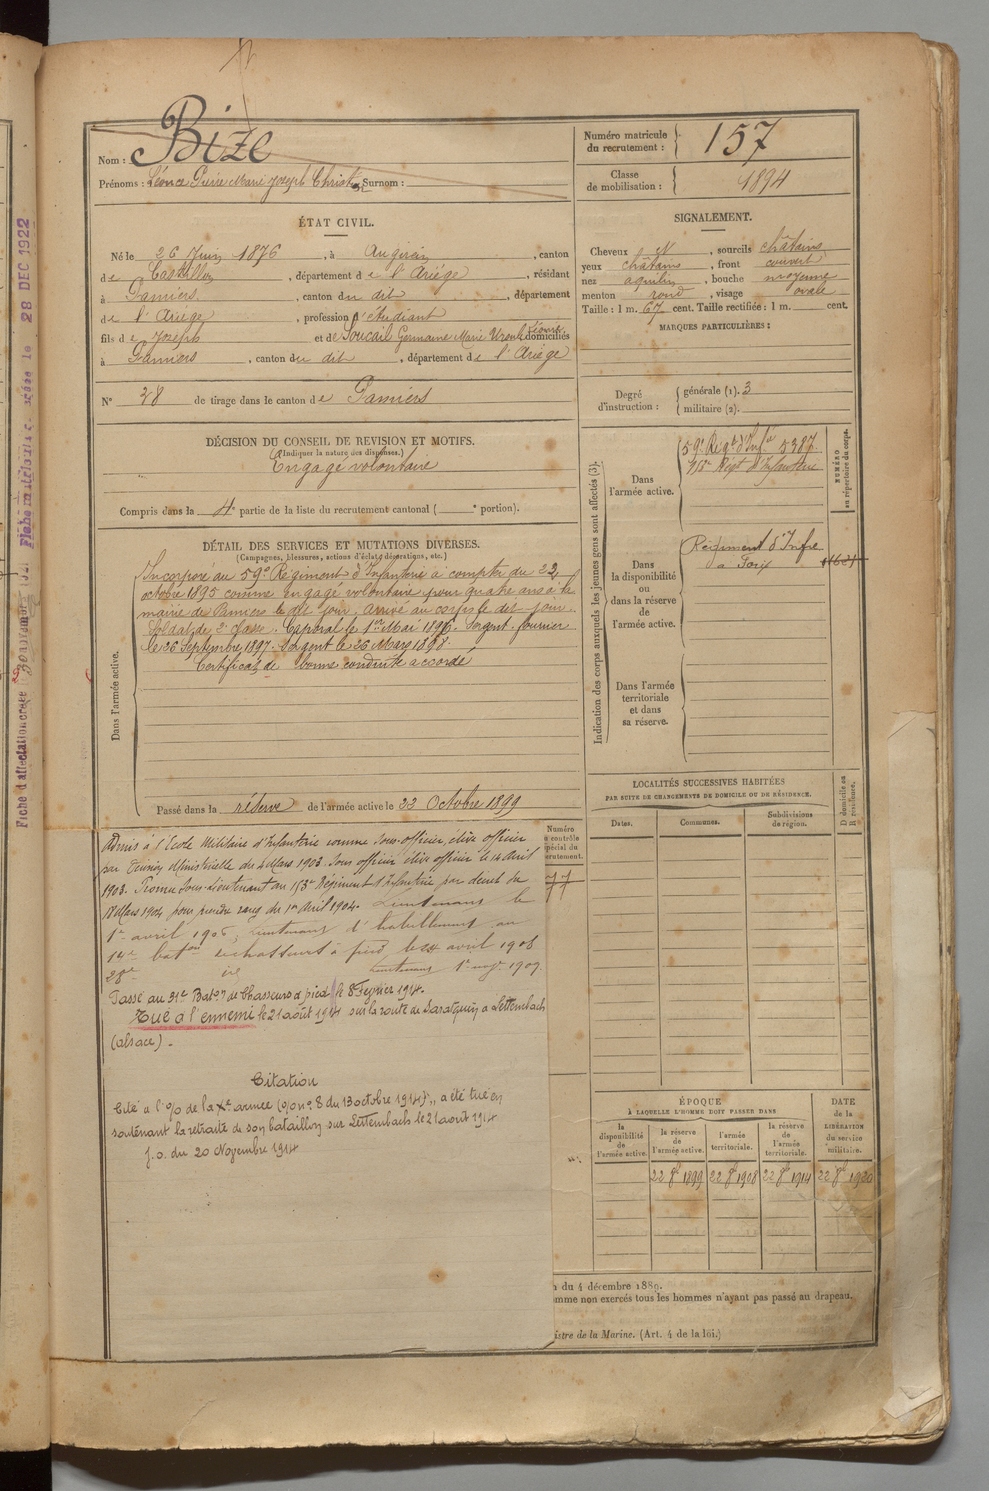 Nom : Bize
Prénoms : Léonce Pierre Marie Joseph Surnom :
Numéro matricule du recrutement : 157
Classe de mobilisation : 1894
ÉTAT CIVIL.
Né le 26 Juin 1876, à Augirein, canton
de Castillon, département de l'Ariége, résidant
à Pamiers, canton du dit, département
de l'Ariége, profession d'étudiant
fils de Joseph et de Soucail Germaine Marie Ursule Léonie domiciliés
à Pamiers, canton du dit, département de l'Ariége
N° 38 de tirage dans le canton de Pamiers
SIGNALEMENT.
Cheveux N, sourcils châtains
yeux châtains, front couvert
nez aquilin, bouche moyenne
menton rond, visage ovale
Taille : 1 m. 67 cent. Taille rectifiée : 1 m. cent.
MARQUES PARTICULIÈRES :
Degré d'instruction : générale (1). 3
militaire (2).
DÉCISION DU CONSEIL DE REVISION ET MOTIFS.
(Indiquer la nature des dispenses.)
Engagé volontaire
Compris dans la 4e partie de la liste du recrutement cantonal ( e portion).
DÉTAIL DES SERVICES ET MUTATIONS DIVERSES.
(Campagnes, blessures, actions d'éclat, décorations, etc.)
Dans l'armée active.
Incorporé au 59e Régiment d'Infanterie à compter du 22
octobre 1895 comme engagé volontaire pour quatre ans à la
mairie de Pamiers le dit jour. Arrivé au corps le dit jour.
Soldat de 2e classe. Caporal le 1er Mai 1896. Sergent fourrier
le 26 Septembre 1897. Sergent le 26 Mars 1898
Certificat de bonne conduite accordé
Passé dans la réserve de l'armée active le 22 Octobre 1899
Admis à l'École Militaire d'Infanterie comme sous-officier élève officier
par Décision Ministérielle du 4 Mars 1903. Sous officier élève officier le 14 avril
1903. Promu Sous-Lieutenant au 153e Régiment d'Infanterie par décret du
18 Mars 1904 pour prendre rang du 1er Avril 1904. Lieutenant le
1er avril 1906, Lieutenant d'habillement au
14e baton de chasseurs à pied le 24 avril 1908
28e id Lieutenant 1909
Passé au 31e Baton de Chasseurs à pied le 8 Février 1914.
Tué à l'ennemi le 21 août 1914 sur la route de Sarraquin à Lettembach
(alsace).
Citation
Cité à l'o/o de la Xe armée (o/o n° 8 du 13 octobre 1914) "a été tué en
soutenant la retraite de son bataillon sur Lettembach le 21 août 1914
J.O. du 20 Novembre 1914
Numéro au contrôle spécial du recrutement.
77
Indication des corps auxquels les jeunes gens sont affectés (3).
NUMÉRO au répertoire du corps.
Dans l'armée active.
59e Régt d'Infie 5387
Régt d'Infanterie
Dans la disponibilité ou dans la réserve de l'armée active.
Régiment d'Infrie
à Foix
Dans l'armée territoriale et dans sa réserve.
LOCALITÉS SUCCESSIVES HABITÉES
PAR SUITE DE CHANGEMENTS DE DOMICILE OU DE RÉSIDENCE.
Dates. Communes. Subdivisions de région. D domicile ou R résidence.
ÉPOQUE
À LAQUELLE L'HOMME DOIT PASSER DANS
DATE de la LIBÉRATION du service militaire.
la disponibilité de l'armée active.
la réserve de l'armée active.
l'armée territoriale.
la réserve de l'armée territoriale.
22 8bre 1899 22 8bre 1908 22 8bre 1914 22 8bre 1920
du 4 décembre 1889.
mme non exercés tous les hommes n'ayant pas passé au drapeau.
istre de la Marine. (Art. 4 de la loi.)
28 DEC 1922